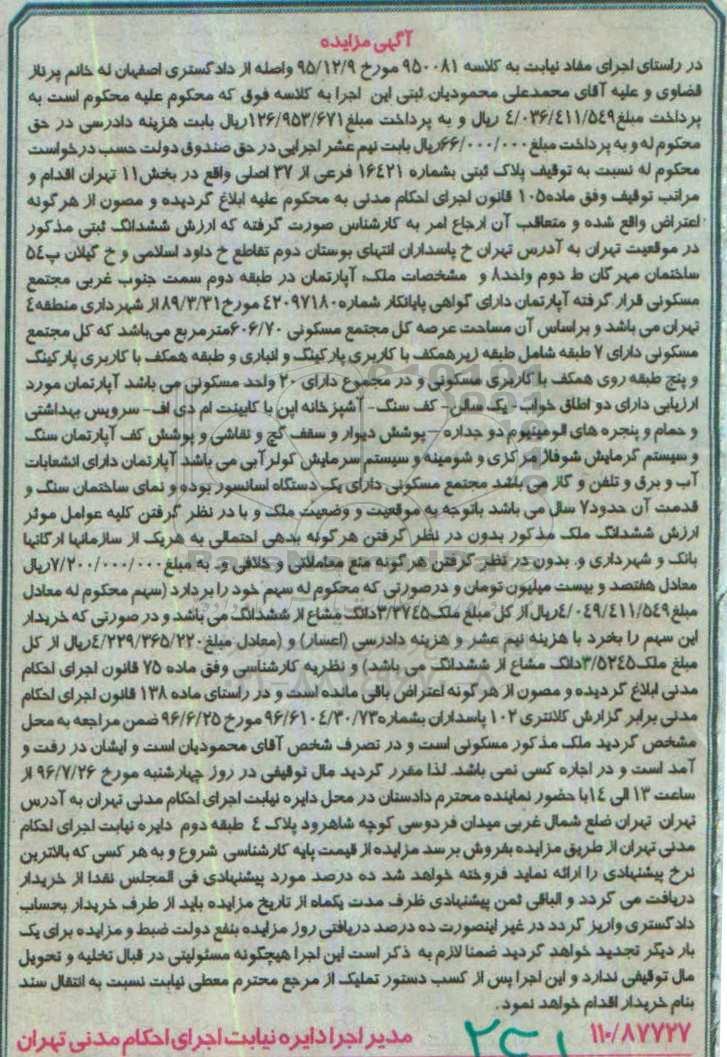 آگهی مزایده
در راستای اجرای مفاد نیابت به کلاسه ۹۵۰۰۸۱ مورخ ۹۵/۱۲/۹ واصله از دادگستری اصفهان له خانم پرناز
قضاوی و علیه آقای محمدعلی محمودیان ثبتی این اجرا به کلاسه فوق که محکوم علیه محکوم است به
پرداخت مبلغ ۴/۰۳۶/۴۱۱/۵۴۹ ریال و به پرداخت مبلغ ۱۲۶/۹۵۳/۶۷۱ریال بابت هزینه دادرسی در حق
محکوم له و به پرداخت مبلغ ۶۶/۰۰۰/۰۰۰ریال بابت نیم عشر اجرایی در حق صندوق دولت حسب درخواست
محکوم له نسبت به توقیف پلاک ثبتی بشماره ۱۶۴۲۱ فرعی از ۳۷ اصلی واقع در بخش۱۱ تهران اقدام و
مراتب توقیف وفق ماده۱۰۵ قانون اجرای احکام مدنی به محکوم علیه ابلاغ گردیده و مصون از هرگونه
اعتراض واقع شده و متعاقب آن ارجاع امر به کارشناس صورت گرفته که ارزش ششدانگ ثبتی مذکور
در موقعیت تهران به آدرس تهران خ پاسداران انتهای بوستان دوم تقاطع خ داود اسلامی و خ گیلان پ۵۴
ساختمان مهرگان ط دوم واحد۸ و مشخصات ملک، آپارتمان در طبقه دوم سمت جنوب غربی مجتمع
مسکونی قرار گرفته آپارتمان دارای گواهی پایانکار شماره۴۲۰۹۷۱۸۰ مورخ۸۹/۳/۳۱ از شهرداری منطقه۴
تهران می باشد و براساس آن مساحت عرصه کل مجتمع مسکونی ۶۰۶/۷۰مترمربع می‌باشد که کل مجتمع
مسکونی دارای ۷ طبقه شامل طبقه زیرهمکف با کاربری پارکینگ و انباری و طبقه همکف با کاربری پارکینگ
و پنج طبقه روی همکف با کاربری مسکونی و در مجموع دارای ۲۰ واحد مسکونی می باشد آپارتمان مورد
ارزیابی دارای دو اطاق خواب- یک سالن- کف سنگ- آشپزخانه اپن با کابینت ام دی اف- سرویس بهداشتی
و حمام و پنجره های الومینیوم دو جداره –پوشش دیوار و سقف گچ و نقاشی و پوشش کف آپارتمان سنگ
و سیستم گرمایش شوفاژ مرکزی و شومینه و سیستم سرمایش کولرآبی می باشد آپارتمان دارای انشعابات
آب و برق و تلفن و گاز می باشد مجتمع مسکونی دارای یک دستگاه اسانسور بوده و نمای ساختمان سنگ و
قدمت آن حدود۷ سال می باشد باتوجه به موقعیت و وضعیت ملک و با در نظر گرفتن کلیه عوامل موثر
ارزش ششدانگ ملک مذکور بدون در نظر گرفتن هرگونه بدهی احتمالی به هریک از سازمانها ارگانها
بانک و شهرداری و. بدون در نظر گرفتن هرگونه منع معاملاتی و خلافی و. به مبلغ۷/۲۰۰/۰۰۰/۰۰۰ریال
معادل هفتصد و بیست میلیون تومان و درصورتی که محکوم له سهم خود را بردارد (سهم محکوم له معادل
مبلغ۴/۰۴۹/۴۱۱/۵۴۹ریال از کل مبلغ ملک۳/۳۷۴۵دانگ مشاع از ششدانگ می باشد و در صورتی که خریدار
این سهم را بخرد با هزینه نیم عشر و هزینه دادرسی (اعسار) و (معادل مبلغ۴/۲۲۹/۳۶۵/۲۲۰ریال از کل
مبلغ ملک۳/۵۲۴۵دانگ مشاع از ششدانگ می باشد) و نظریه کارشناسی وفق ماده ۷۵ قانون اجرای احکام
مدنی ابلاغ گردیده و مصون از هرگونه اعتراض باقی مانده است و در راستای ماده ۱۳۸ قانون اجرای احکام
مدنی برابر گزارش کلانتری ۱۰۲ پاسداران بشماره۹۶/۶۱۰۴/۳۰/۷۳ مورخ ۹۶/۶/۲۵ ضمن مراجعه به محل
مشخص گردید ملک مذکور مسکونی است و در تصرف شخص آقای محمودیان است و ایشان در رفت و
آمد است و در اجاره کسی نمی باشد. لذا مقرر گردید مال توقیفی در روز چهارشنبه مورخ ۹۶/۷/۲۶ از
ساعت ۱۳ الی ۱۴با حضور نماینده محترم دادستان در محل دایره نیابت اجرای احکام مدنی تهران به آدرس
تهران تهران ضلع شمال غربی میدان فردوسی کوچه شاهرود پلاک ۴ طبقه دوم دایره نیابت اجرای احکام
مدنی تهران از طریق مزایده بفروش برسد مزایده از قیمت پایه کارشناسی شروع و به هر کسی که بالاترین
نرخ پیشنهادی را ارائه نماید فروخته خواهد شد ده درصد مورد پیشنهادی فی المجلس نقدا از خریدار
دریافت می گردد و الباقی ثمن پیشنهادی ظرف مدت یکماه از تاریخ مزایده باید از طرف خریدار بحساب
دادگستری واریز گردد در غیر اینصورت ده درصد دریافتی روز مزایده بنفع دولت ضبط و مزایده برای یک
بار دیگر تجدید خواهد گردید ضمنا لازم به ذکر است این اجرا هیچگونه مسئولیتی در قبال تخلیه و تحویل
مال توقیفی ندارد و این اجرا پس از کسب دستور تملیک از مرجع محترم معطی نیابت نسبت به انتقال سند
بنام خریدار اقدام خواهد نمود.
۱۱۰/۸۷۷۲۷ مدیر اجرا دایره نیابت اجرای احکام مدنی تهران